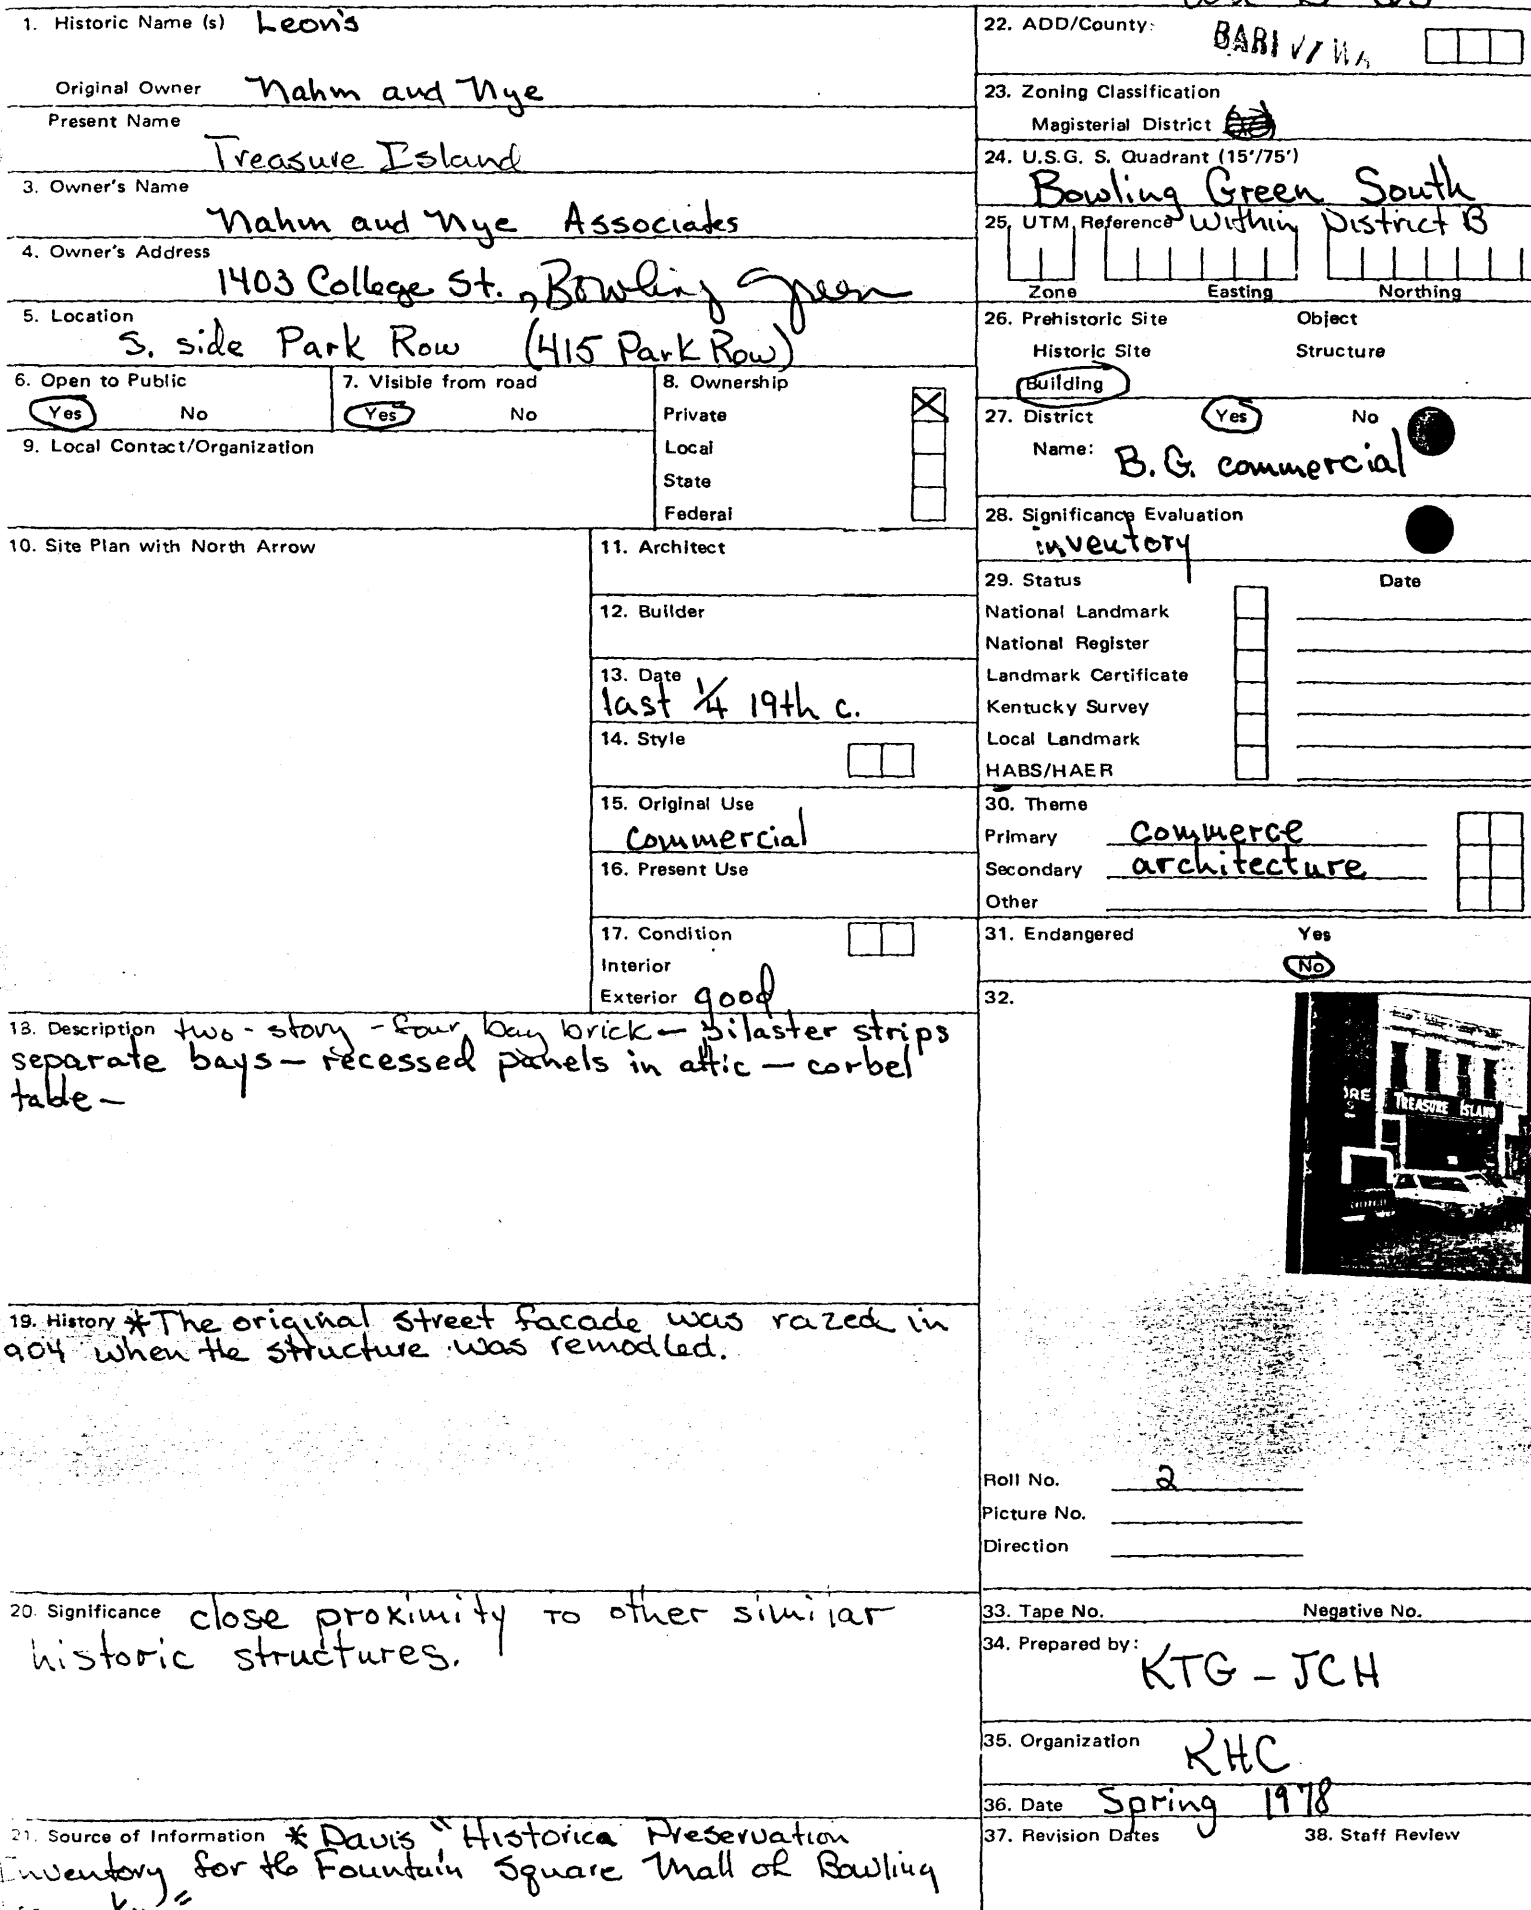 1. Historic Name (s) Leon's
Original Owner Nahm and Nye
Present Name
Treasure Island
3. Owner's Name
Nahm and Nye Associates
4. Owner's Address
1403 College St., Bowling Green
5. Location
S. side Park Row (415 Park Row)
6. Open to Public
Yes No
7. Visible from road
Yes No
8. Ownership
Private
Local
State
Federal
9. Local Contact/Organization
10. Site Plan with North Arrow
11. Architect
12. Builder
13. Date
last 1/4 19th c.
14. Style
15. Original Use
Commercial
16. Present Use
17. Condition
Interior
Exterior good
18. Description two-story - four bay brick — pilaster strips
separate bays — recessed panels in attic — corbel
table —
19. History *The original street facade was razed in
904 when the structure was remodled.
20. Significance close proximity to other similar
historic structures.
21. Source of Information * Davis "Historica Preservation
Inventory for the Fountain Square Mall of Bowling
22. ADD/County:
23. Zoning Classification
Magisterial District
24. U.S.G. S. Quadrant (15'/75')
Bowling Green South
25. UTM Reference Within District B
Zone Easting Northing
26. Prehistoric Site Object
Historic Site Structure
Building
27. District Yes No
Name: B.G. commercial
28. Significance Evaluation
inventory
29. Status Date
National Landmark
National Register
Landmark Certificate
Kentucky Survey
Local Landmark
HABS/HAER
30. Theme
Primary commerce
Secondary architecture
Other
31. Endangered Yes
No
32.
TREASURE ISLAND
Roll No. 2
Picture No.
Direction
33. Tape No. Negative No.
34. Prepared by:
KTG - JCH
35. Organization KHC
36. Date Spring 1978
37. Revision Dates 38. Staff Review